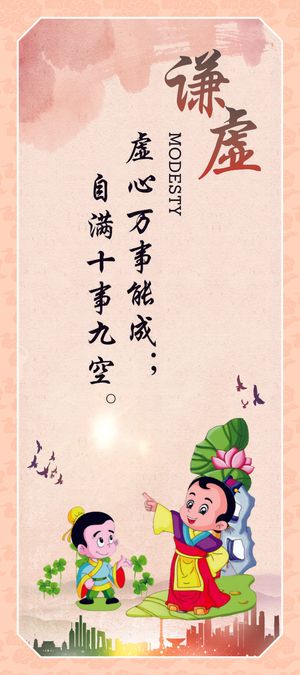 谦虚
MODESTY
虚心万事能成；
自满十事九空。